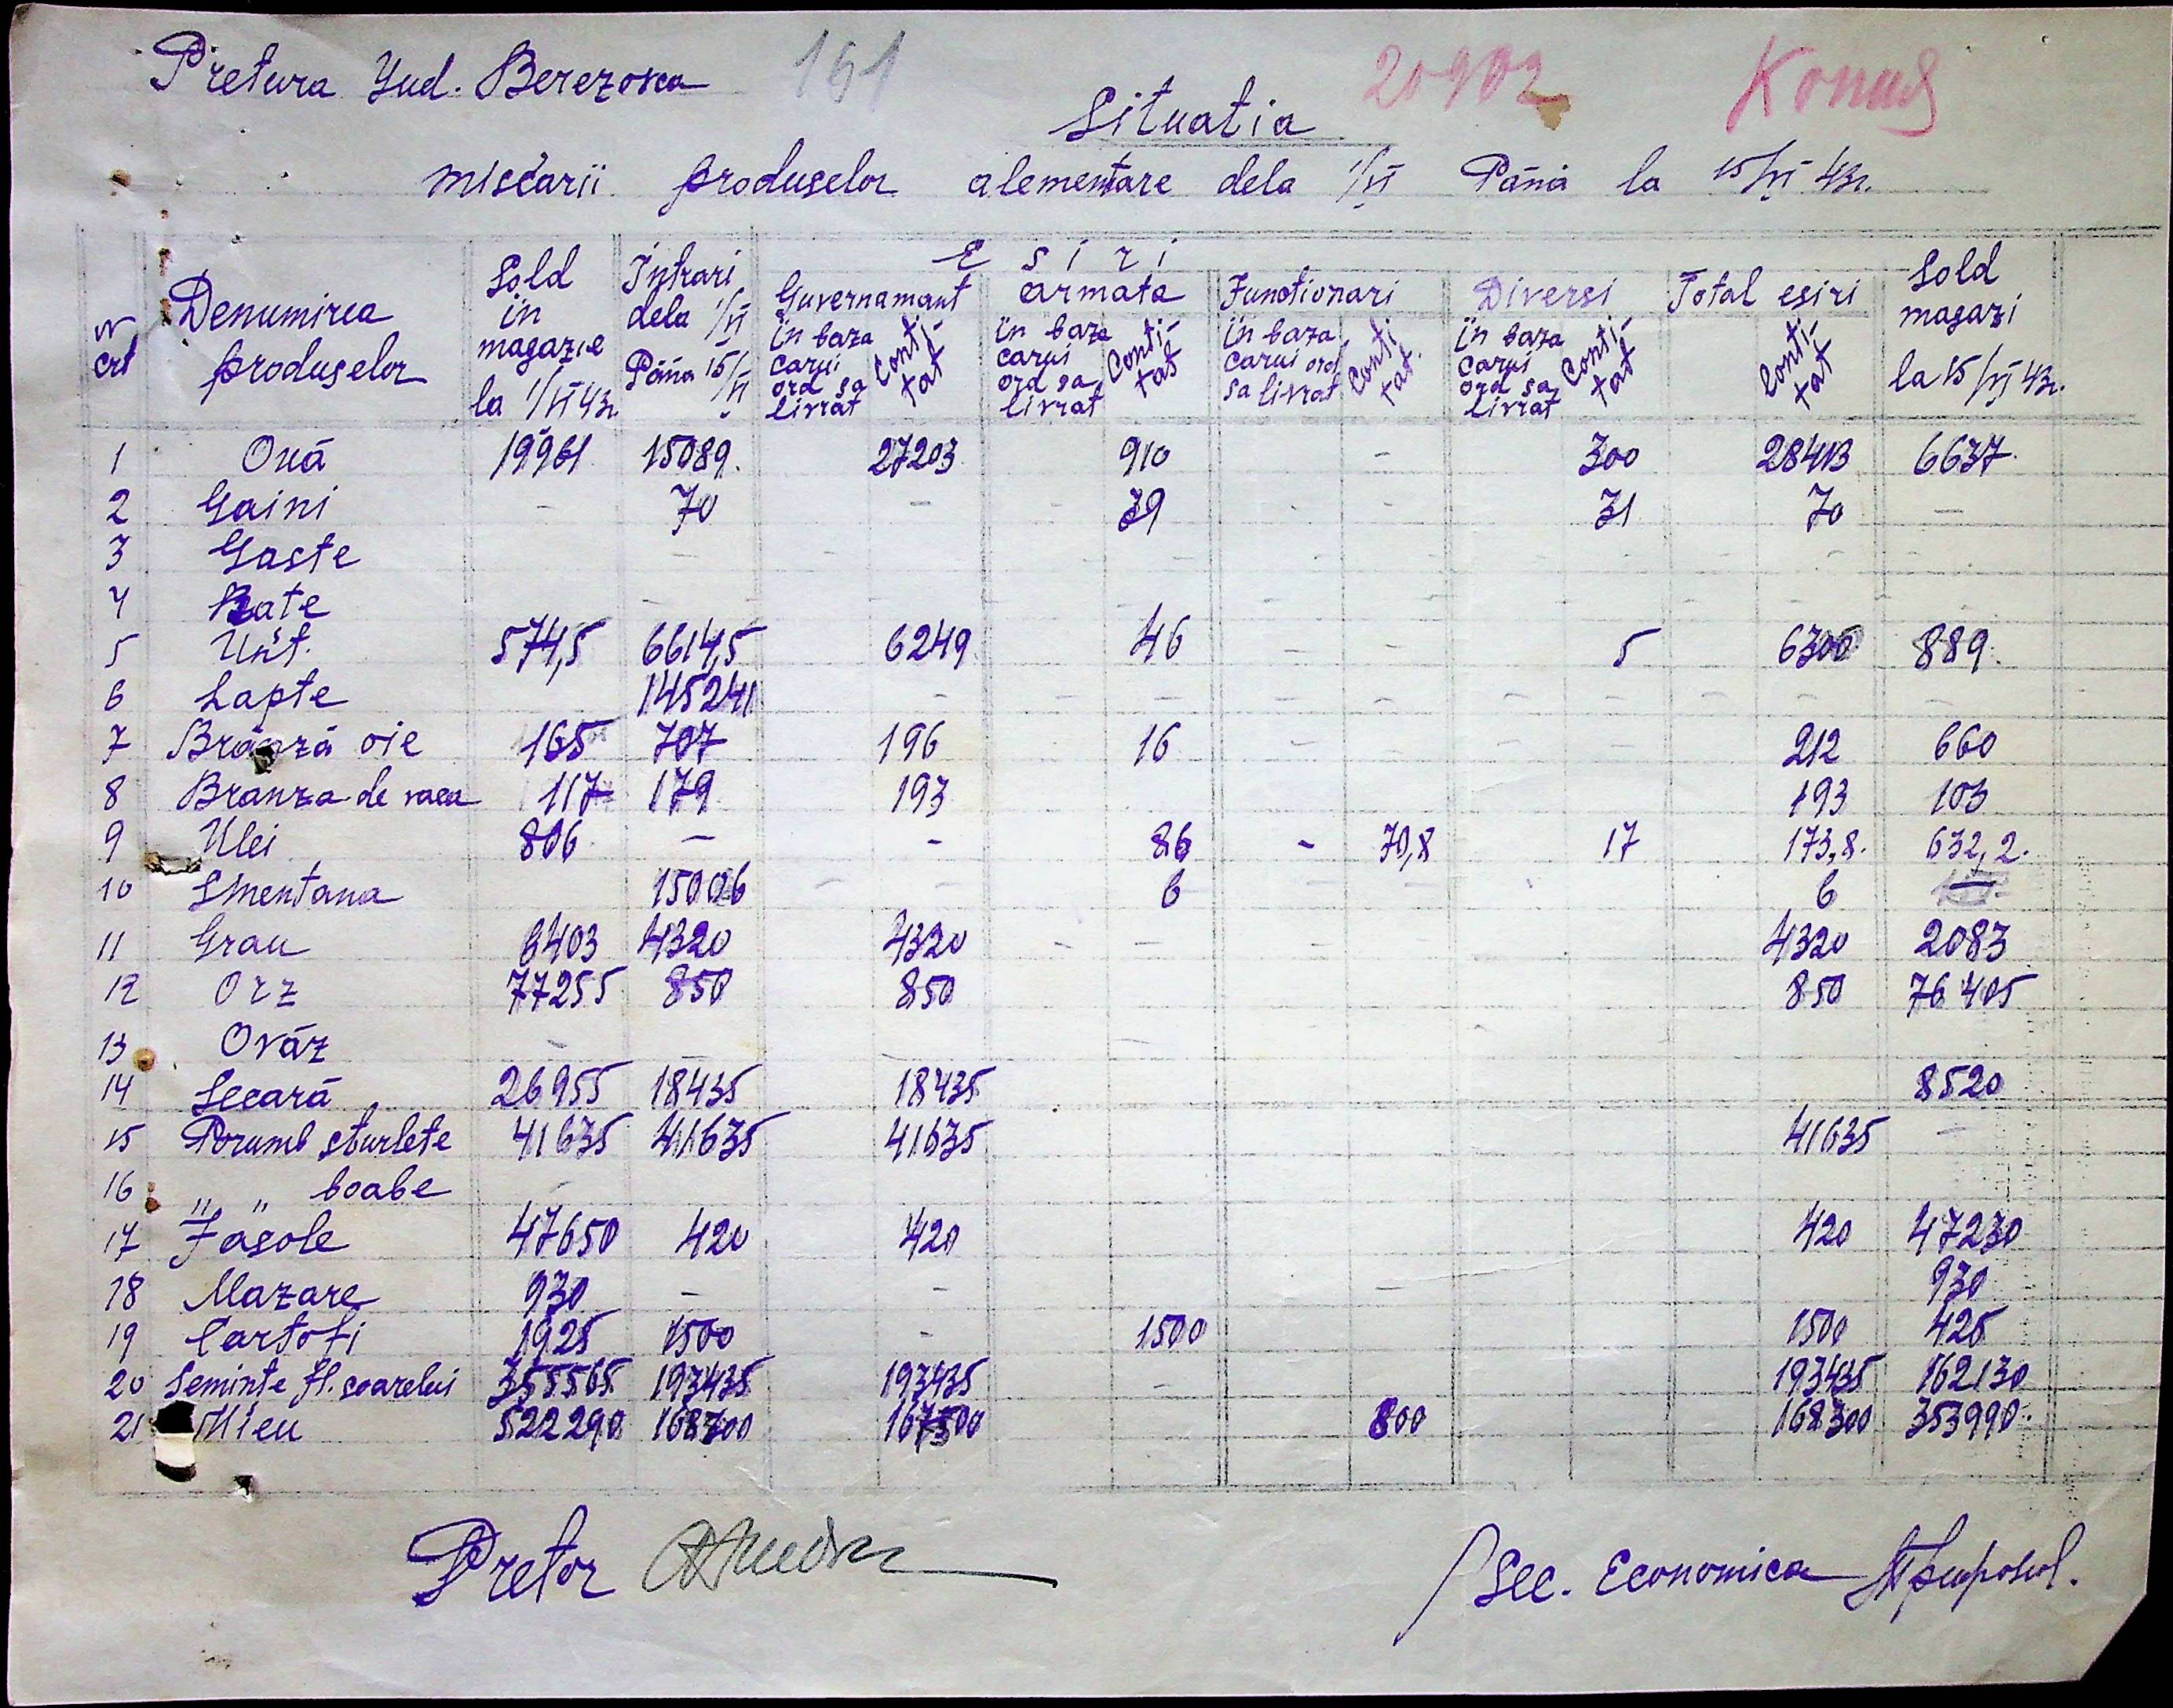 Pretura Jud. Berezovca 161 20902 Копия
Situatia
miscarii produselor alementare dela 1/VI Pănă la 15/VI 43r.
Nr crt Denumirea produselor Sold in magazie la 1/VI 43r. Intrari dela 1/VI Păna 15/VI Esiri Sold magazi la 15/VI 43r.
Guvernamant armata Functionari Diversi Total esiri
in baza carui ord sa livrat Contitat in baza carui ord sa livrat Contitat in baza carui ord sa livrat Contitat in baza carui ord sa livrat Contitat Contitat
1 Ouă 19961 15089. 27203 910 - 300 28413 6637
2 Gaini - 70 - 39 - - 31 70 -
3 Gaste
4 Rate
5 Unt. 574,5 6614,5 6249 46 - - 5 6300 889.
6 Lapte 145241 - - - - - - - - -
7 Brânză oie 165 707 196 16 - - - - 212 660
8 Branza de vaca 117 179 193 193 103
9 Ulei 806 - - 86 - 70,8 17 173,8. 632,2.
10 Smentana 15006 - - 6 - - 6 -
11 Grau 6403 4320 4320 - - - - 4320 2083
12 Orz 77255 850 850 850 76405
13 Ovăz - - -
14 Secară 26955 18435 18435 8520
15 Porumb sturlete 41635 41635 41635 41635 -
16 " " boabe -
17 Fasole 47650 420 420 420 47230
18 Mazare 930 - - - 930
19 Cartofi 1925 1500 - 1500 1500 425
20 Seminte fl. soarelui 355565 193435 193435 - 193435 162130
21 Mieu 522290 168300 167500 800 168300 353990.
Pretor
Sec. Economica